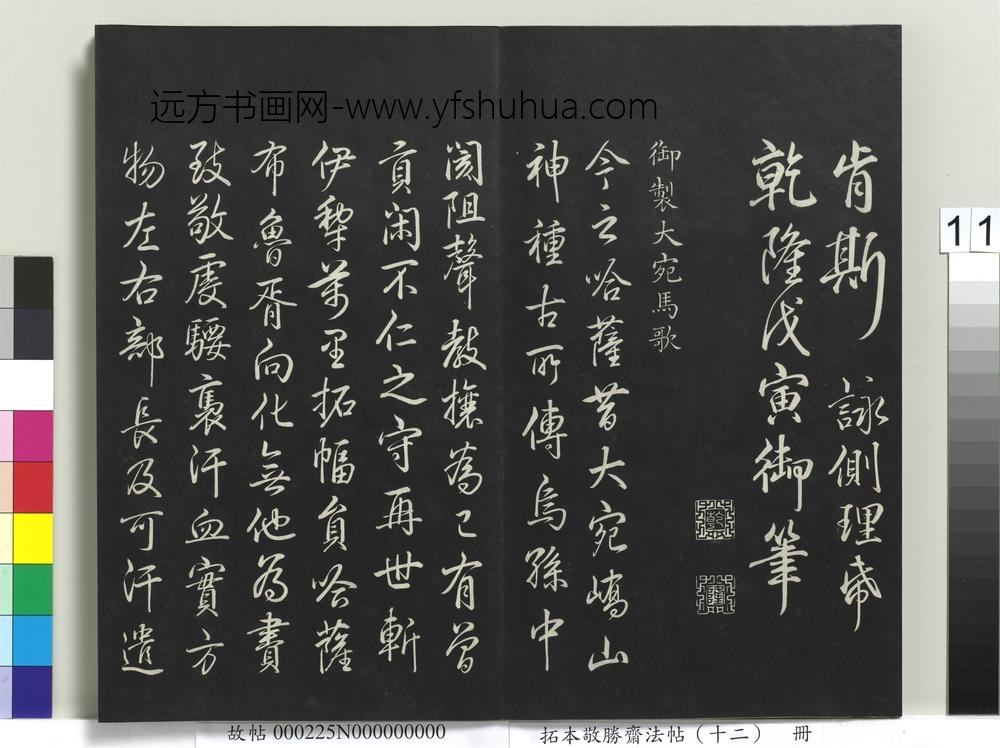 远方书画网-www.yfshuhua.com
肯斯 詠側理帋
乾隆戊寅御筆
乾
隆
御製大宛馬歌
今之哈薩昔大宛嶠山
神種古所傳烏孫中
閡阻聲教攘為己有曾
貢闲不仁之守再世斬
伊犂萬里拓幅員哈薩
布魯胥向化無他為賮
致敬虔騕褭汗血實方
物左右部長及可汗遣
11
故帖 000225N000000000
拓本敬勝齋法帖（十二） 冊